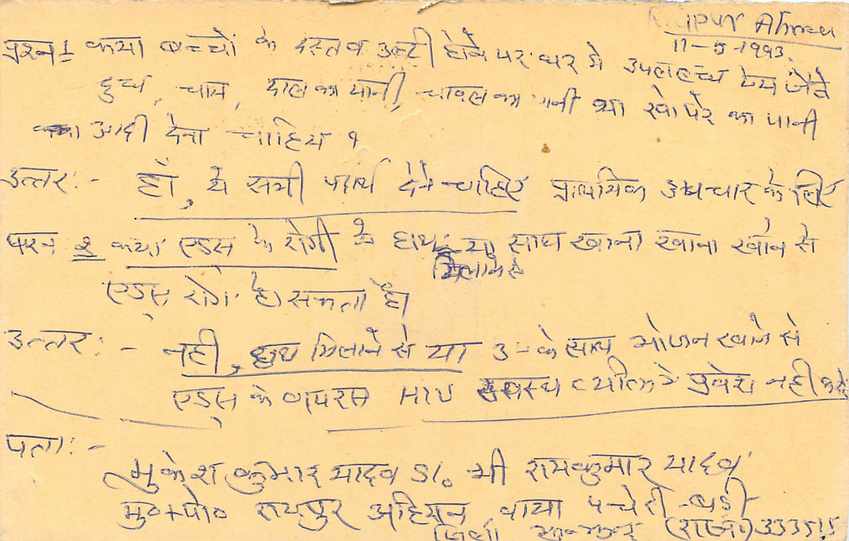 Raipur Ahiran
11-5-1993
प्रश्न 1 क्या बच्चों के दस्त व उल्टी होने पर घर में उपलब्ध पेय जैसे
दुध, चाय, दाल का पानी, चावल का पानी या का पानी
आदी देना चाहिय ?
उत्तर:- हाँ, ये सभी पदार्थ देने चाहिए प्राथमिक उपचार के लिए
प्रश्न 2 क्या एड्स के रोगी के हाथ या साथ खाना खाना खाने से
मिलाने से
एड्स रोग हो सकता है।
उत्तर:- नही, हाथ मिलाने से या उनके साथ भोजन खाने से
एड्स के वायरस HIV स्वस्थ व्यक्ति में प्रवेश नही करते
पता:-
मुकेश कुमार यादव S/o श्री रामकुमार यादव
मु०+पो० रायपुर अहिरान, वाया पचेरी बडी
जिला झुन्झुनू (राज०) 333515